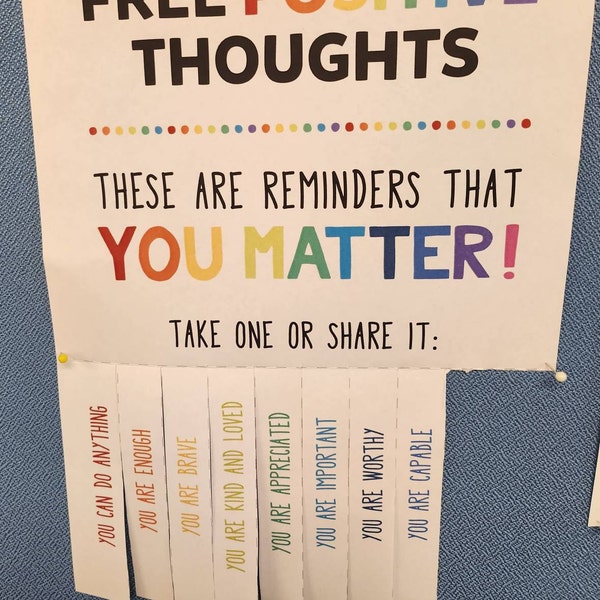 FREE POSITIVE
THOUGHTS
THESE ARE REMINDERS THAT
YOU MATTER!
TAKE ONE OR SHARE IT:
YOU CAN DO ANYTHING
YOU ARE ENOUGH
YOU ARE BRAVE
YOU ARE KIND AND LOVED
YOU ARE APPRECIATED
YOU ARE IMPORTANT
YOU ARE WORTHY
YOU ARE CAPABLE